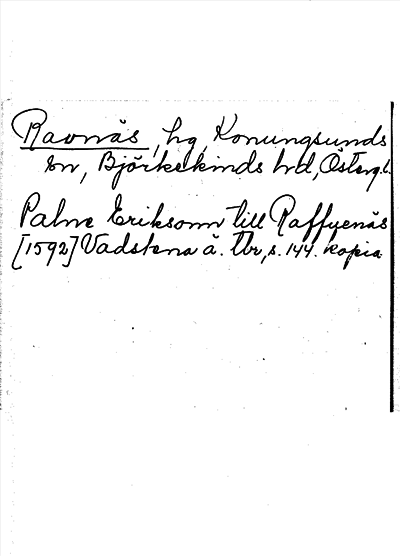 Ravnäs, hg, Konungsunds
sn, Björkekinds hd, Österg.l.
Palne Eriksonn till Raffuenäs
[1592] Vadstena ä. tbr, s. 144. kopia